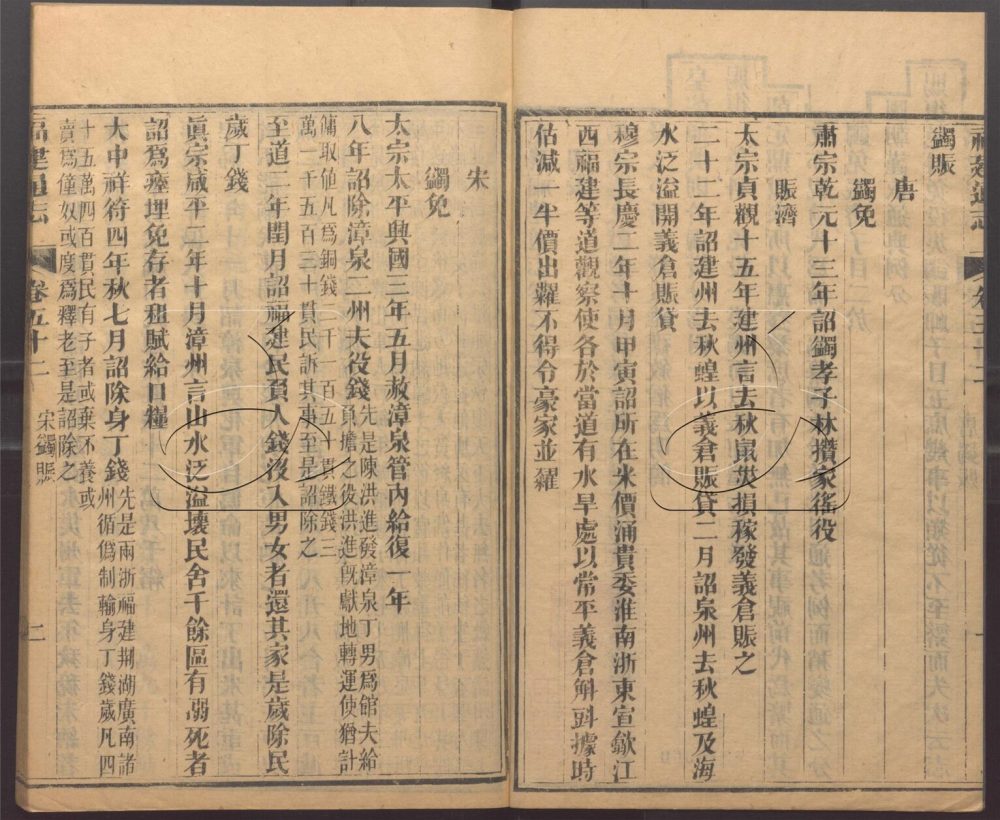 蠲賑
唐
蠲免
肅宗乾元十三年詔蠲孝子林攢家徭役
賑濟
太宗貞觀十五年建州言去秋鼠災損稼發義倉賑之
二十二年詔建州去秋蝗以義倉賑貸二月詔泉州去秋蝗及海
水泛溢開義倉賑貸
穆宗長慶二年十月甲寅詔所在米價涌貴委淮南浙東宣歙江
西福建等道觀察使各於當道有水旱處以常平義倉斛㪷據時
估減一半價出糶不得令豪家並糴
宋
蠲免
太宗太平興國三年五月赦漳泉管內給復一年
八年詔除漳泉二州夫役錢先是陳洪進發漳泉丁男爲館夫給
負擔之役洪進旣獻地轉運使猶計
傭取值凡爲銅錢二千一百五十貫鐵錢三
萬一千五百三十貫民訴其事至是詔除之
至道二年閏月詔福建民負人錢沒入男女者還其家是歲除民
歲丁錢
眞宗咸平二年十月漳州言山水泛溢壞民舍千餘區有溺死者
詔爲瘞埋免存者租賦給口糧
大中祥符四年秋七月詔除身丁錢先是兩浙福建荆湖廣南諸
州循僞制輸身丁錢歲凡四
十五萬四百貫民有子者或棄不養或
賣爲僮奴或度爲釋老至是詔除之
福建通志
卷五十二
宋蠲賑
二